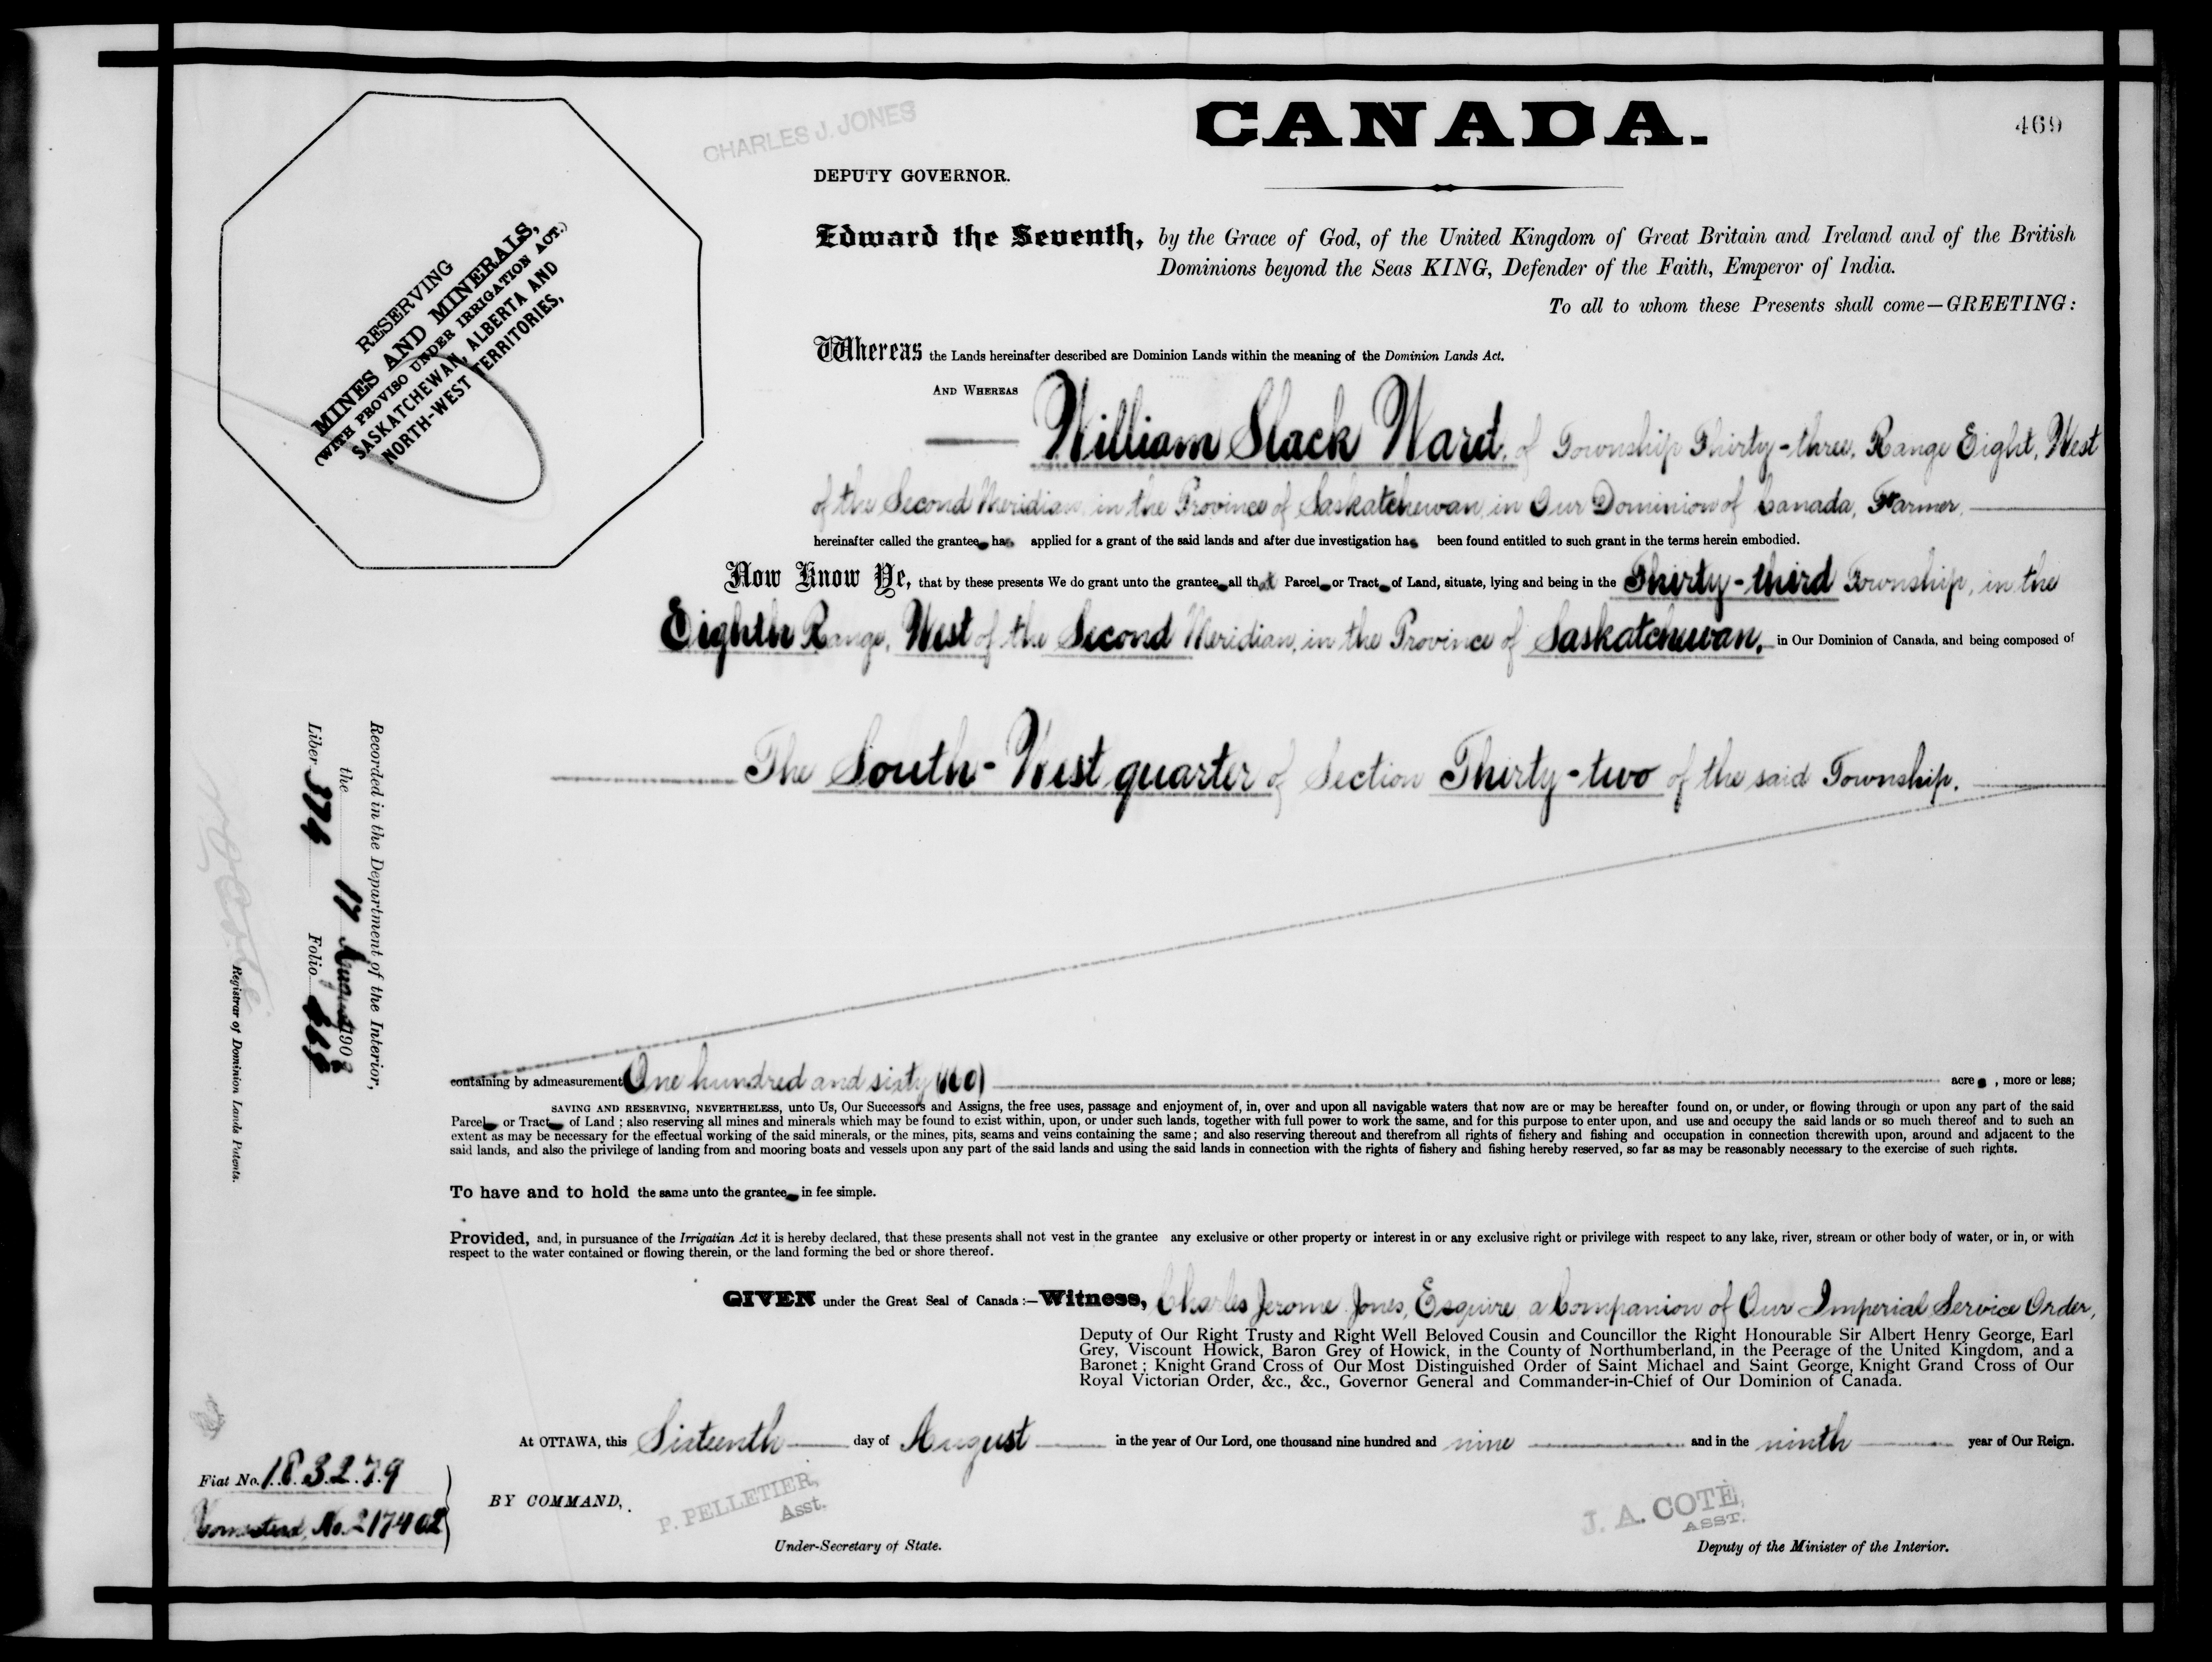 CHARLES J. JONES
CANADA.
469
DEPUTY GOVERNOR.
RESERVING
MINES AND MINERALS,
(WITH PROVISO UNDER IRRIGATION ACT.)
SASKATCHEWAN, ALBERTA AND
NORTH-WEST TERRITORIES,
Edward the Seventh, by the Grace of God, of the United Kingdom of Great Britain and Ireland and of the British
Dominions beyond the Seas KING, Defender of the Faith, Emperor of India.
To all to whom these Presents shall come—GREETING:
Whereas the Lands hereinafter described are Dominion Lands within the meaning of the Dominion Lands Act.
AND WHEREAS
William Slack Ward, of Township Thirty-three, Range Eight, West
of the Second Meridian, in the Province of Saskatchewan, in Our Dominion of Canada, Farmer,
hereinafter called the grantee ha applied for a grant of the said lands and after due investigation ha been found entitled to such grant in the terms herein embodied.
Now Know Ye, that by these presents We do grant unto the grantee all that Parcel or Tract of Land, situate, lying and being in the Thirty-third Township, in the
Eighth Range, West of the Second Meridian, in the Province of Saskatchewan, in Our Dominion of Canada, and being composed of
The South-West quarter of Section Thirty-two of the said Township.
Recorded in the Department of the Interior,
the 17 August 190
Liber 374 Folio
Registrar of Dominion Lands Patents.
containing by admeasurement One hundred and sixty (160) acre , more or less;
SAVING AND RESERVING, NEVERTHELESS, unto Us, Our Successors and Assigns, the free uses, passage and enjoyment of, in, over and upon all navigable waters that now are or may be hereafter found on, or under, or flowing through or upon any part of the said
Parcel or Tract of Land; also reserving all mines and minerals which may be found to exist within, upon, or under such lands, together with full power to work the same, and for this purpose to enter upon, and use and occupy the said lands or so much thereof and to such an
extent as may be necessary for the effectual working of the said minerals, or the mines, pits, seams and veins containing the same; and also reserving thereout and therefrom all rights of fishery and fishing and occupation in connection therewith upon, around and adjacent to the
said lands, and also the privilege of landing from and mooring boats and vessels upon any part of the said lands and using the said lands in connection with the rights of fishery and fishing hereby reserved, so far as may be reasonably necessary to the exercise of such rights.
To have and to hold the same unto the grantee in fee simple.
Provided, and, in pursuance of the Irrigatian Act it is hereby declared, that these presents shall not vest in the grantee any exclusive or other property or interest in or any exclusive right or privilege with respect to any lake, river, stream or other body of water, or in, or with
respect to the water contained or flowing therein, or the land forming the bed or shore thereof.
GIVEN under the Great Seal of Canada:—Witness, Charles Jerome Jones, Esquire, a Companion of Our Imperial Service Order,
Deputy of Our Right Trusty and Right Well Beloved Cousin and Councillor the Right Honourable Sir Albert Henry George, Earl
Grey, Viscount Howick, Baron Grey of Howick, in the County of Northumberland, in the Peerage of the United Kingdom, and a
Baronet; Knight Grand Cross of Our Most Distinguished Order of Saint Michael and Saint George, Knight Grand Cross of Our
Royal Victorian Order, &c., &c., Governor General and Commander-in-Chief of Our Dominion of Canada.
At OTTAWA, this Sixteenth day of August in the year of Our Lord, one thousand nine hundred and nine and in the ninth year of Our Reign.
Fiat No. 183279
Homestead, No. 217402
BY COMMAND,
P. PELLETIER,
Asst.
Under-Secretary of State.
J. A. COTE,
ASST.
Deputy of the Minister of the Interior.